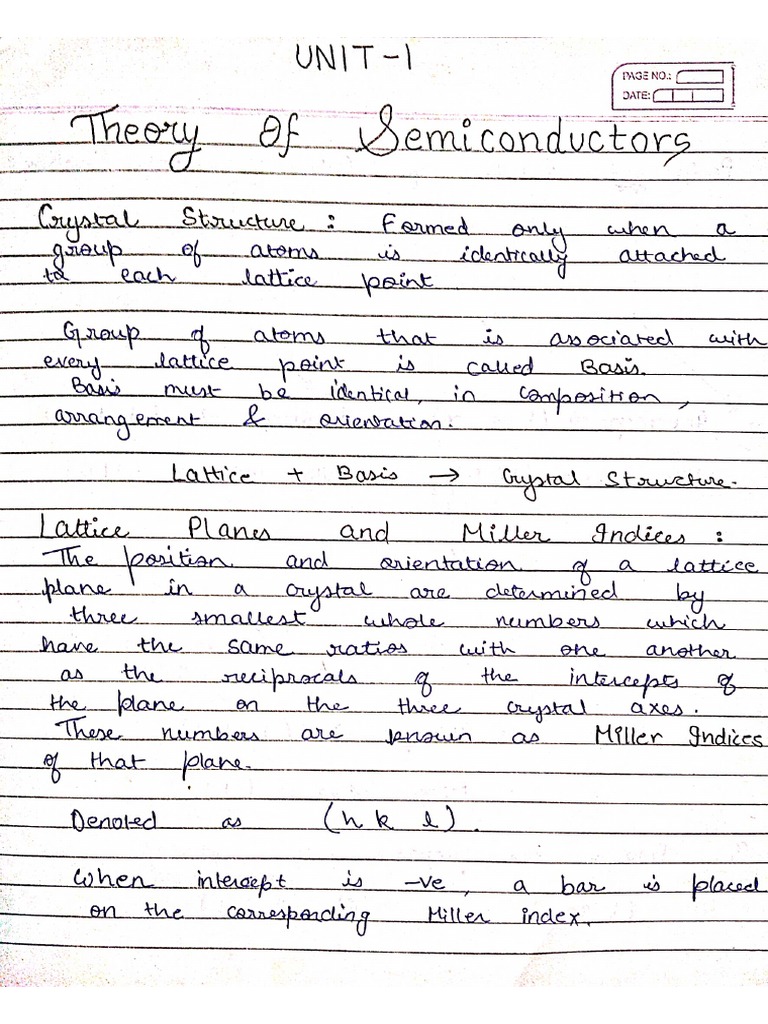 UNIT-1
PAGE NO.:
DATE:
Theory Of Semiconductors
Crystal Structure : Formed only when a
group of atoms is identically attached
to each lattice point
Group of atoms that is associated with
every lattice point is called Basis.
Basis must be identical, in composition,
arrangement & orientation.
Lattice + Basis → Crystal Structure.
Lattice Planes and Miller Indices :
The position and orientation of a lattice
plane in a crystal are determined by
three smallest whole numbers which
have the same ratios with one another
as the reciprocals of the intercepts of
the plane on the three crystal axes.
These numbers are known as Miller Indices
of that plane.
Denoted as (h k l).
When intercept is -ve, a bar is placed
on the corresponding Miller index.